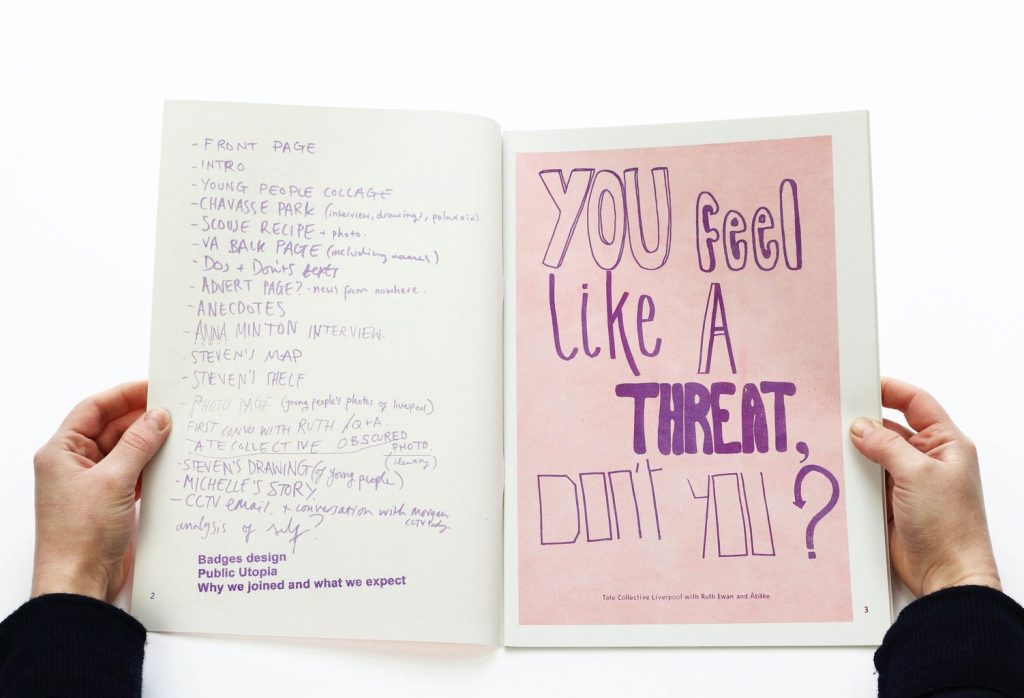 - FRONT PAGE
- INTRO
- YOUNG PEOPLE COLLAGE
- CHAVASSE PARK (interview, drawings, polaroid)
- SCOUSE RECIPE + photo.
- VA BACK PAGE (including names)
- DOs + Don'ts
- ADVERT PAGE? - news from nowhere.
- ANECDOTES
- ANNA MINTON INTERVIEW.
- STEVEN'S MAP
- STEVEN'S SHELF
- PHOTO PAGE (young people's photos of liverpool)
- FIRST CONVO WITH RUTH / Q+A.
TATE COLLECTIVE OBSCURED PHOTO.
(identity)
- STEVEN'S DRAWING (of young people)
- MICHELLE'S STORY.
- CCTV email. + conversation with Morgan
CCTV
analysis of self?
Badges design
Public Utopia
Why we joined and what we expect
2
YOU feel
like A
THREAT,
DON'T YOU?
Tate Collective Liverpool with Ruth Ewan and Åbäke
3